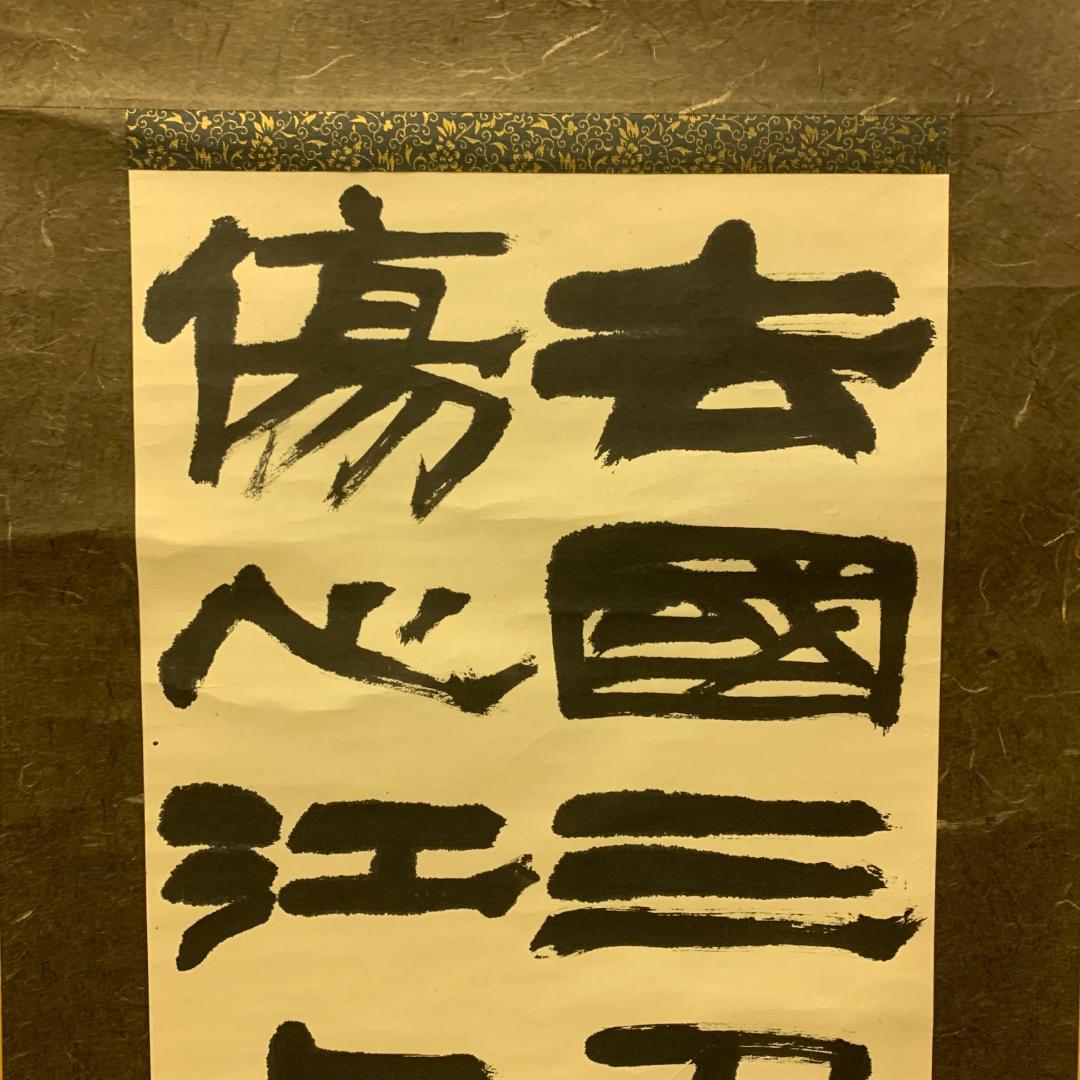 去國三
傷心江